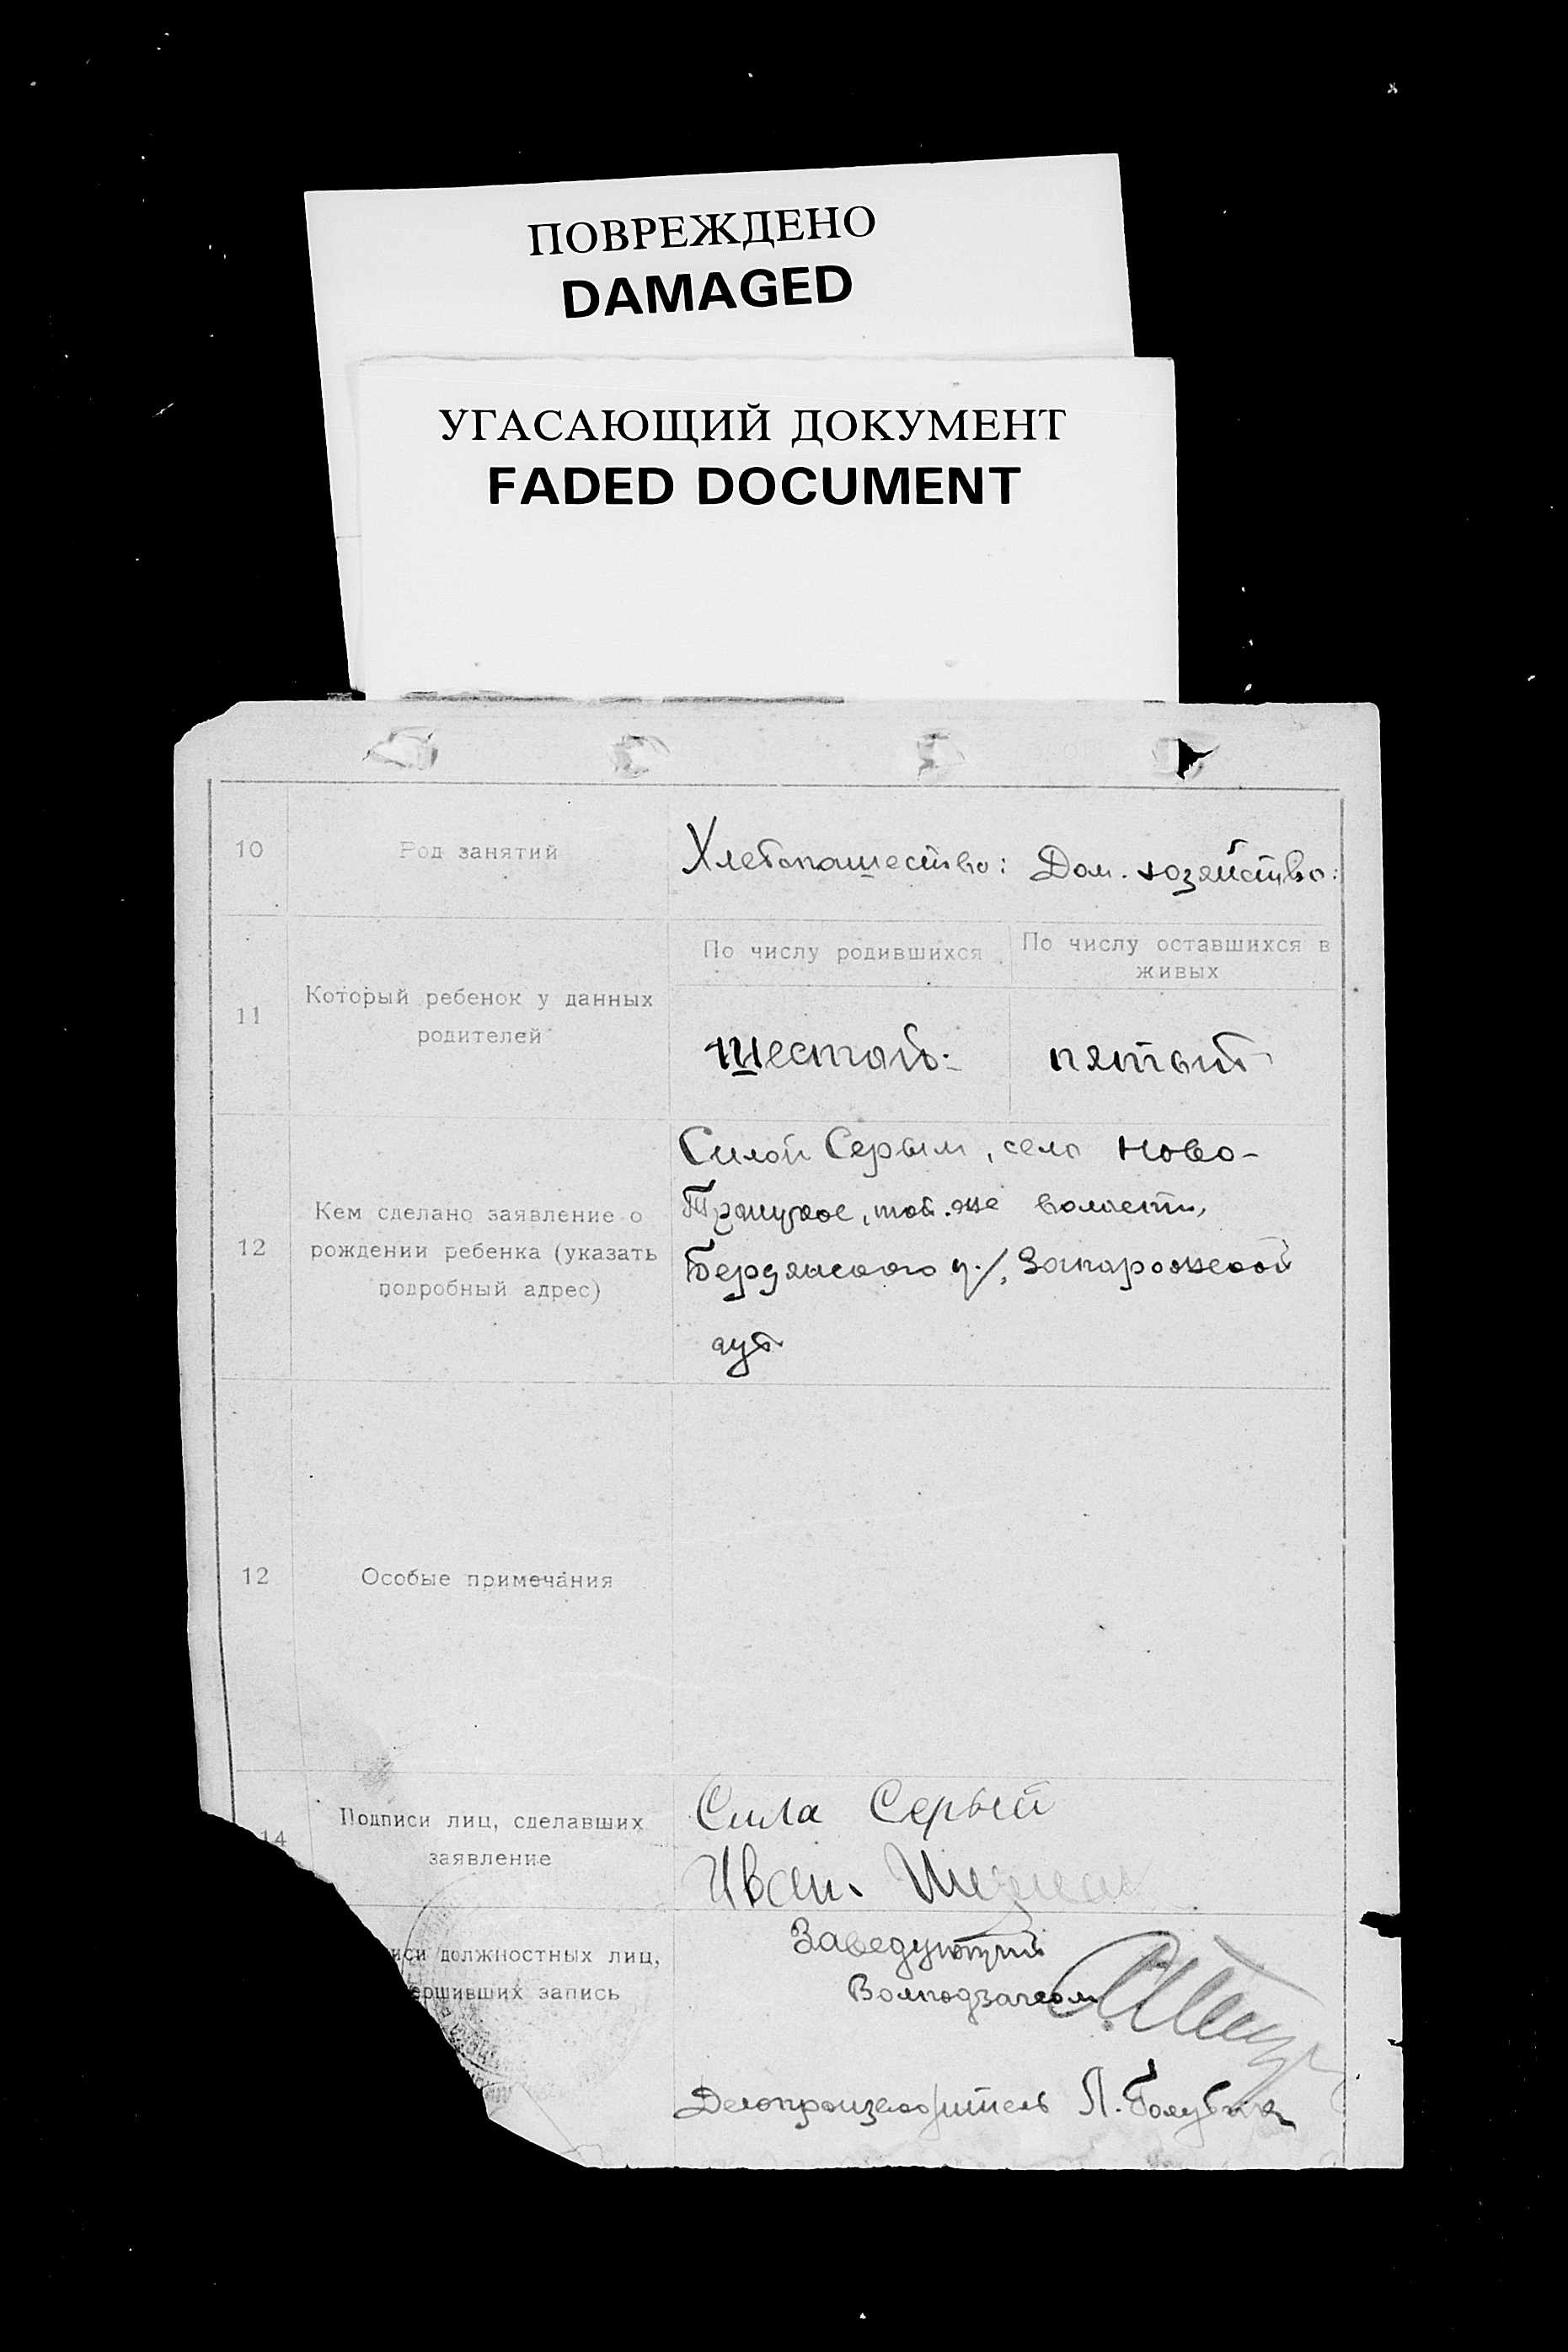 ПОВРЕЖДЕНО
DAMAGED
УГАСАЮЩИЙ ДОКУМЕНТ
FADED DOCUMENT
10
Род занятий
Хлебопашество: Дом. хозяйство:
11
Который ребенок у данных
родителей
По числу родившихся
По числу оставшихся в
живых
шестой:
пятый
12
Кем сделано заявление о
рождении ребенка (указать
подробный адрес)
Силой Серым, село Ново-
Троицкое, той же волости,
Бердянского у./, Запорожской
губ
12
Особые примечания
14
Подписи лиц, сделавших
заявление
Сила Серый
Иван
иси должностных лиц,
ершивших запись
Заведующий
Волподзагсом
Делопроизводитель Л. Голубка